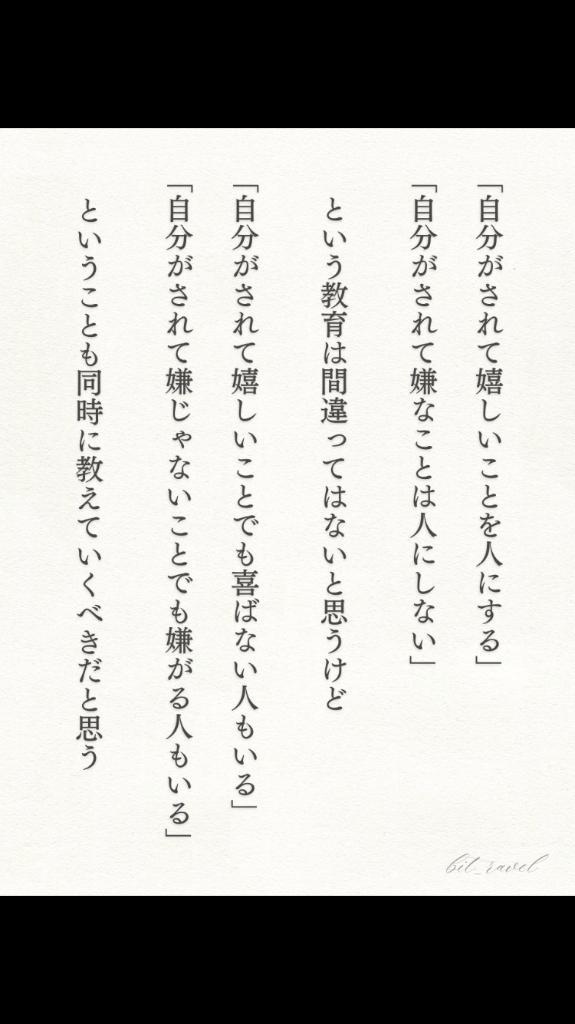 「自分がされて嬉しいことを人にする」
「自分がされて嫌なことは人にしない」
という教育は間違ってはないと思うけど
「自分がされて嬉しいことでも喜ばない人もいる」
「自分がされて嫌じゃないことでも嫌がる人もいる」
ということも同時に教えていくべきだと思う
bit_ravel